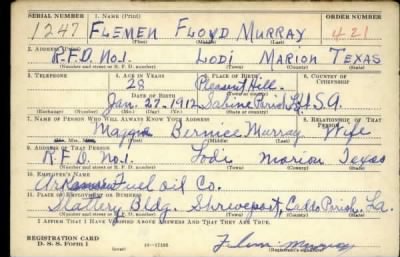 SERIAL NUMBER 1. NAME (Print) ORDER NUMBER
1247 FLEMEN FLOYD MURRAY 421
(First) (Middle) (Last)
2. ADDRESS (Print)
R.F.D. No.1. LODI MARION TEXAS
(Number and street or R. F. D. number) (Town) (County) (State)
3. TELEPHONE 4. AGE IN YEARS 5. PLACE OF BIRTH 6. COUNTRY OF CITIZENSHIP
28 Pleasant Hill.
DATE OF BIRTH
Jan. 27. 1912 Sabine Parish U.S.A.
(Exchange) (Number) (Mo.) (Day) (Yr.) (State or country)
7. NAME OF PERSON WHO WILL ALWAYS KNOW YOUR ADDRESS 8. RELATIONSHIP OF THAT PERSON
Maggie Berniece Murray Wife
(First) (Middle) (Last)
9. ADDRESS OF THAT PERSON
R.F.D. No.1. Lodi Marion Texas
(Number and street or R. F. D. number) (Town) (County) (State)
10. EMPLOYER'S NAME
Arkansas Fuel Oil Co.
11. PLACE OF EMPLOYMENT OR BUSINESS
Slattery Bldg. Shreveport, Caddo Parish, La.
(Number and street or R. F. D. number) (Town) (County) (State)
I AFFIRM THAT I HAVE VERIFIED ABOVE ANSWERS AND THAT THEY ARE TRUE.
REGISTRATION CARD
D. S. S. Form 1 Murray